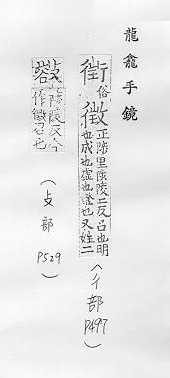 龍龕手鏡
俗
徵
正陟里陟陵二反召也明
也成也虛也證也又姓二
(彳部 P497)
陟陵反今
作徵召也
(攴部 P529)